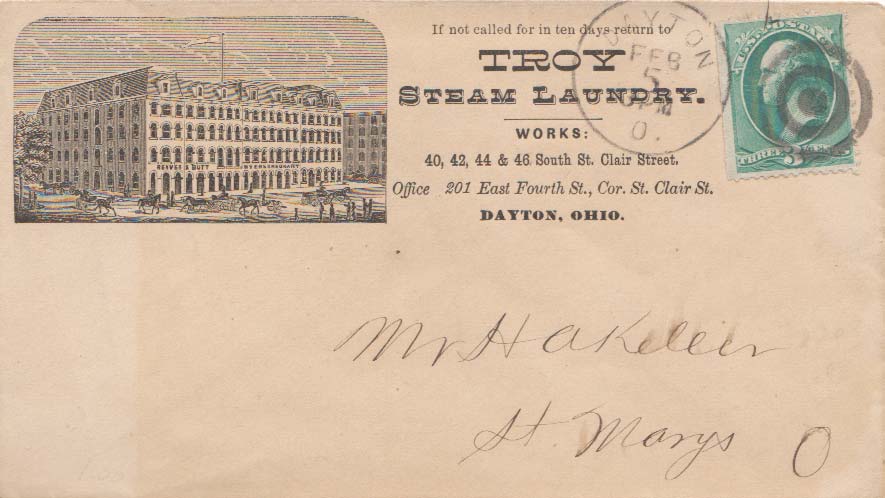 If not called for in ten days return to
TROY
STEAM LAUNDRY.
WORKS:
40, 42, 44 & 46 South St. Clair Street.
Office 201 East Fourth St., Cor. St. Clair St.
DAYTON, OHIO.
DAYTON
FEB
5
O.
U.S. POSTAGE
THREE CENTS
BEAVER & BUTT
Mr H A Keleer
St. Marys O